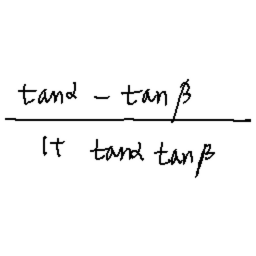 tanα - tan β
1+ tanα tan β